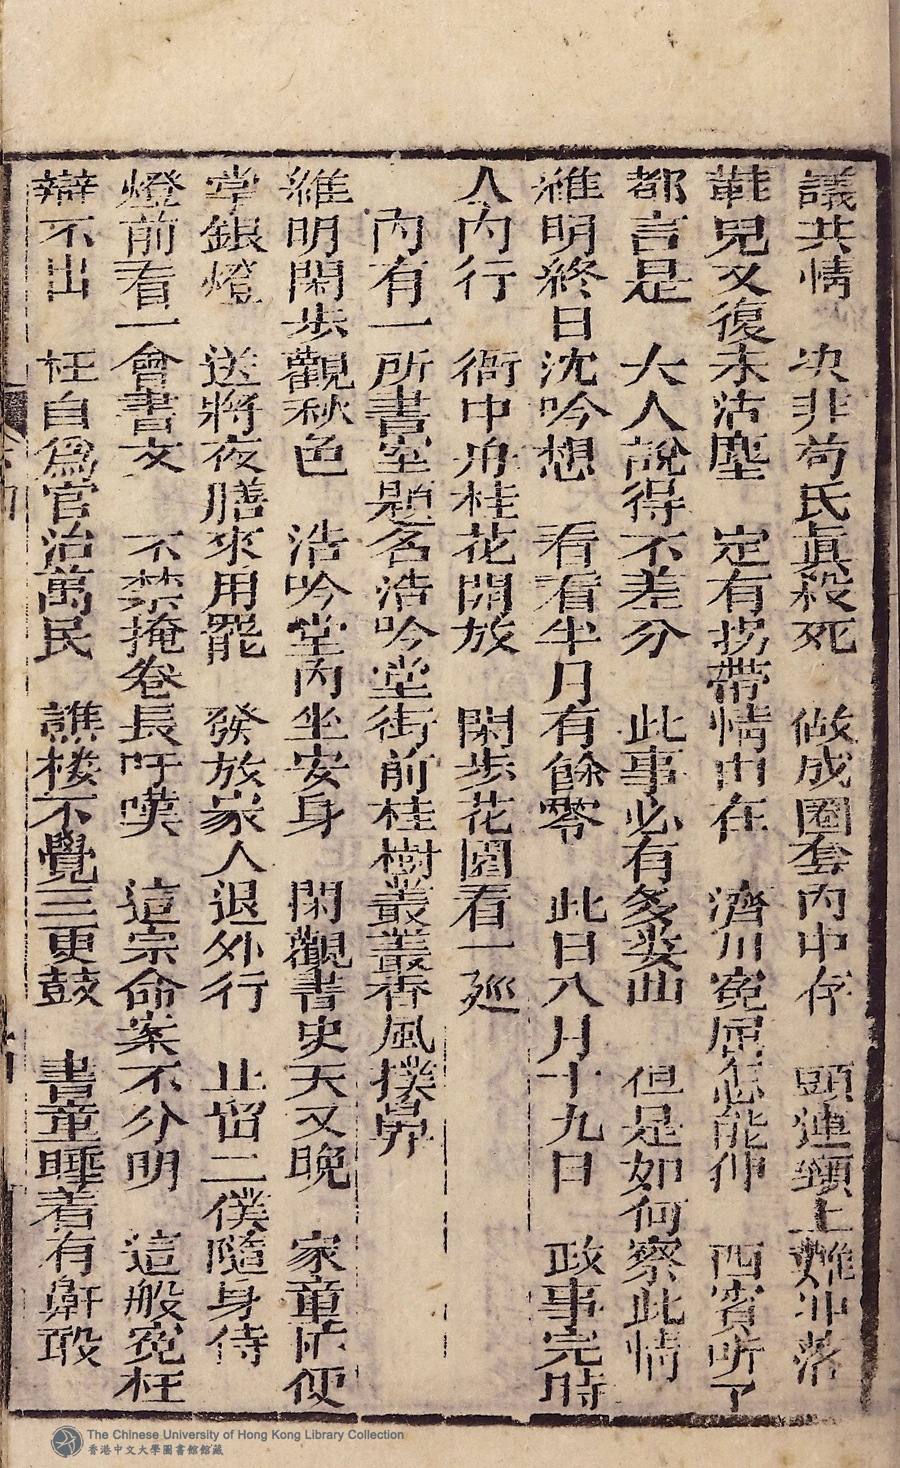 議共情　决非苟氏眞殺死　做成圈套內中存　頭連頸上難沖落
鞋兒又復未沾塵　定有拐帶情由在　濟川寃屈怎能伸　西賓听了
都言是　大人說得不差分　此事必有多委曲　但是如何察此情
維明終日沈吟想　看看半月有餘零　此日八月十九日　政事完時
入內行　衙中丹桂花開放　閑步花園看一廵
內有一所書室題名浩吟堂街前桂樹叢叢香風撲鼻
維明閑步觀秋色　浩吟堂內坐安身　閑觀書史天又晚　家童忙便
掌銀燈　送將夜膳來用罷　發放家人退外行　止留二僕隨身侍
燈前看一會書文　不禁掩卷長吁嘆　這宗命案不分明　這般寃枉
辯不出　枉自爲官治萬民　譙楼不覺三更鼓　書童睡着有鼾
The Chinese University of Hong Kong Library Collection
香港中文大學圖書館館藏